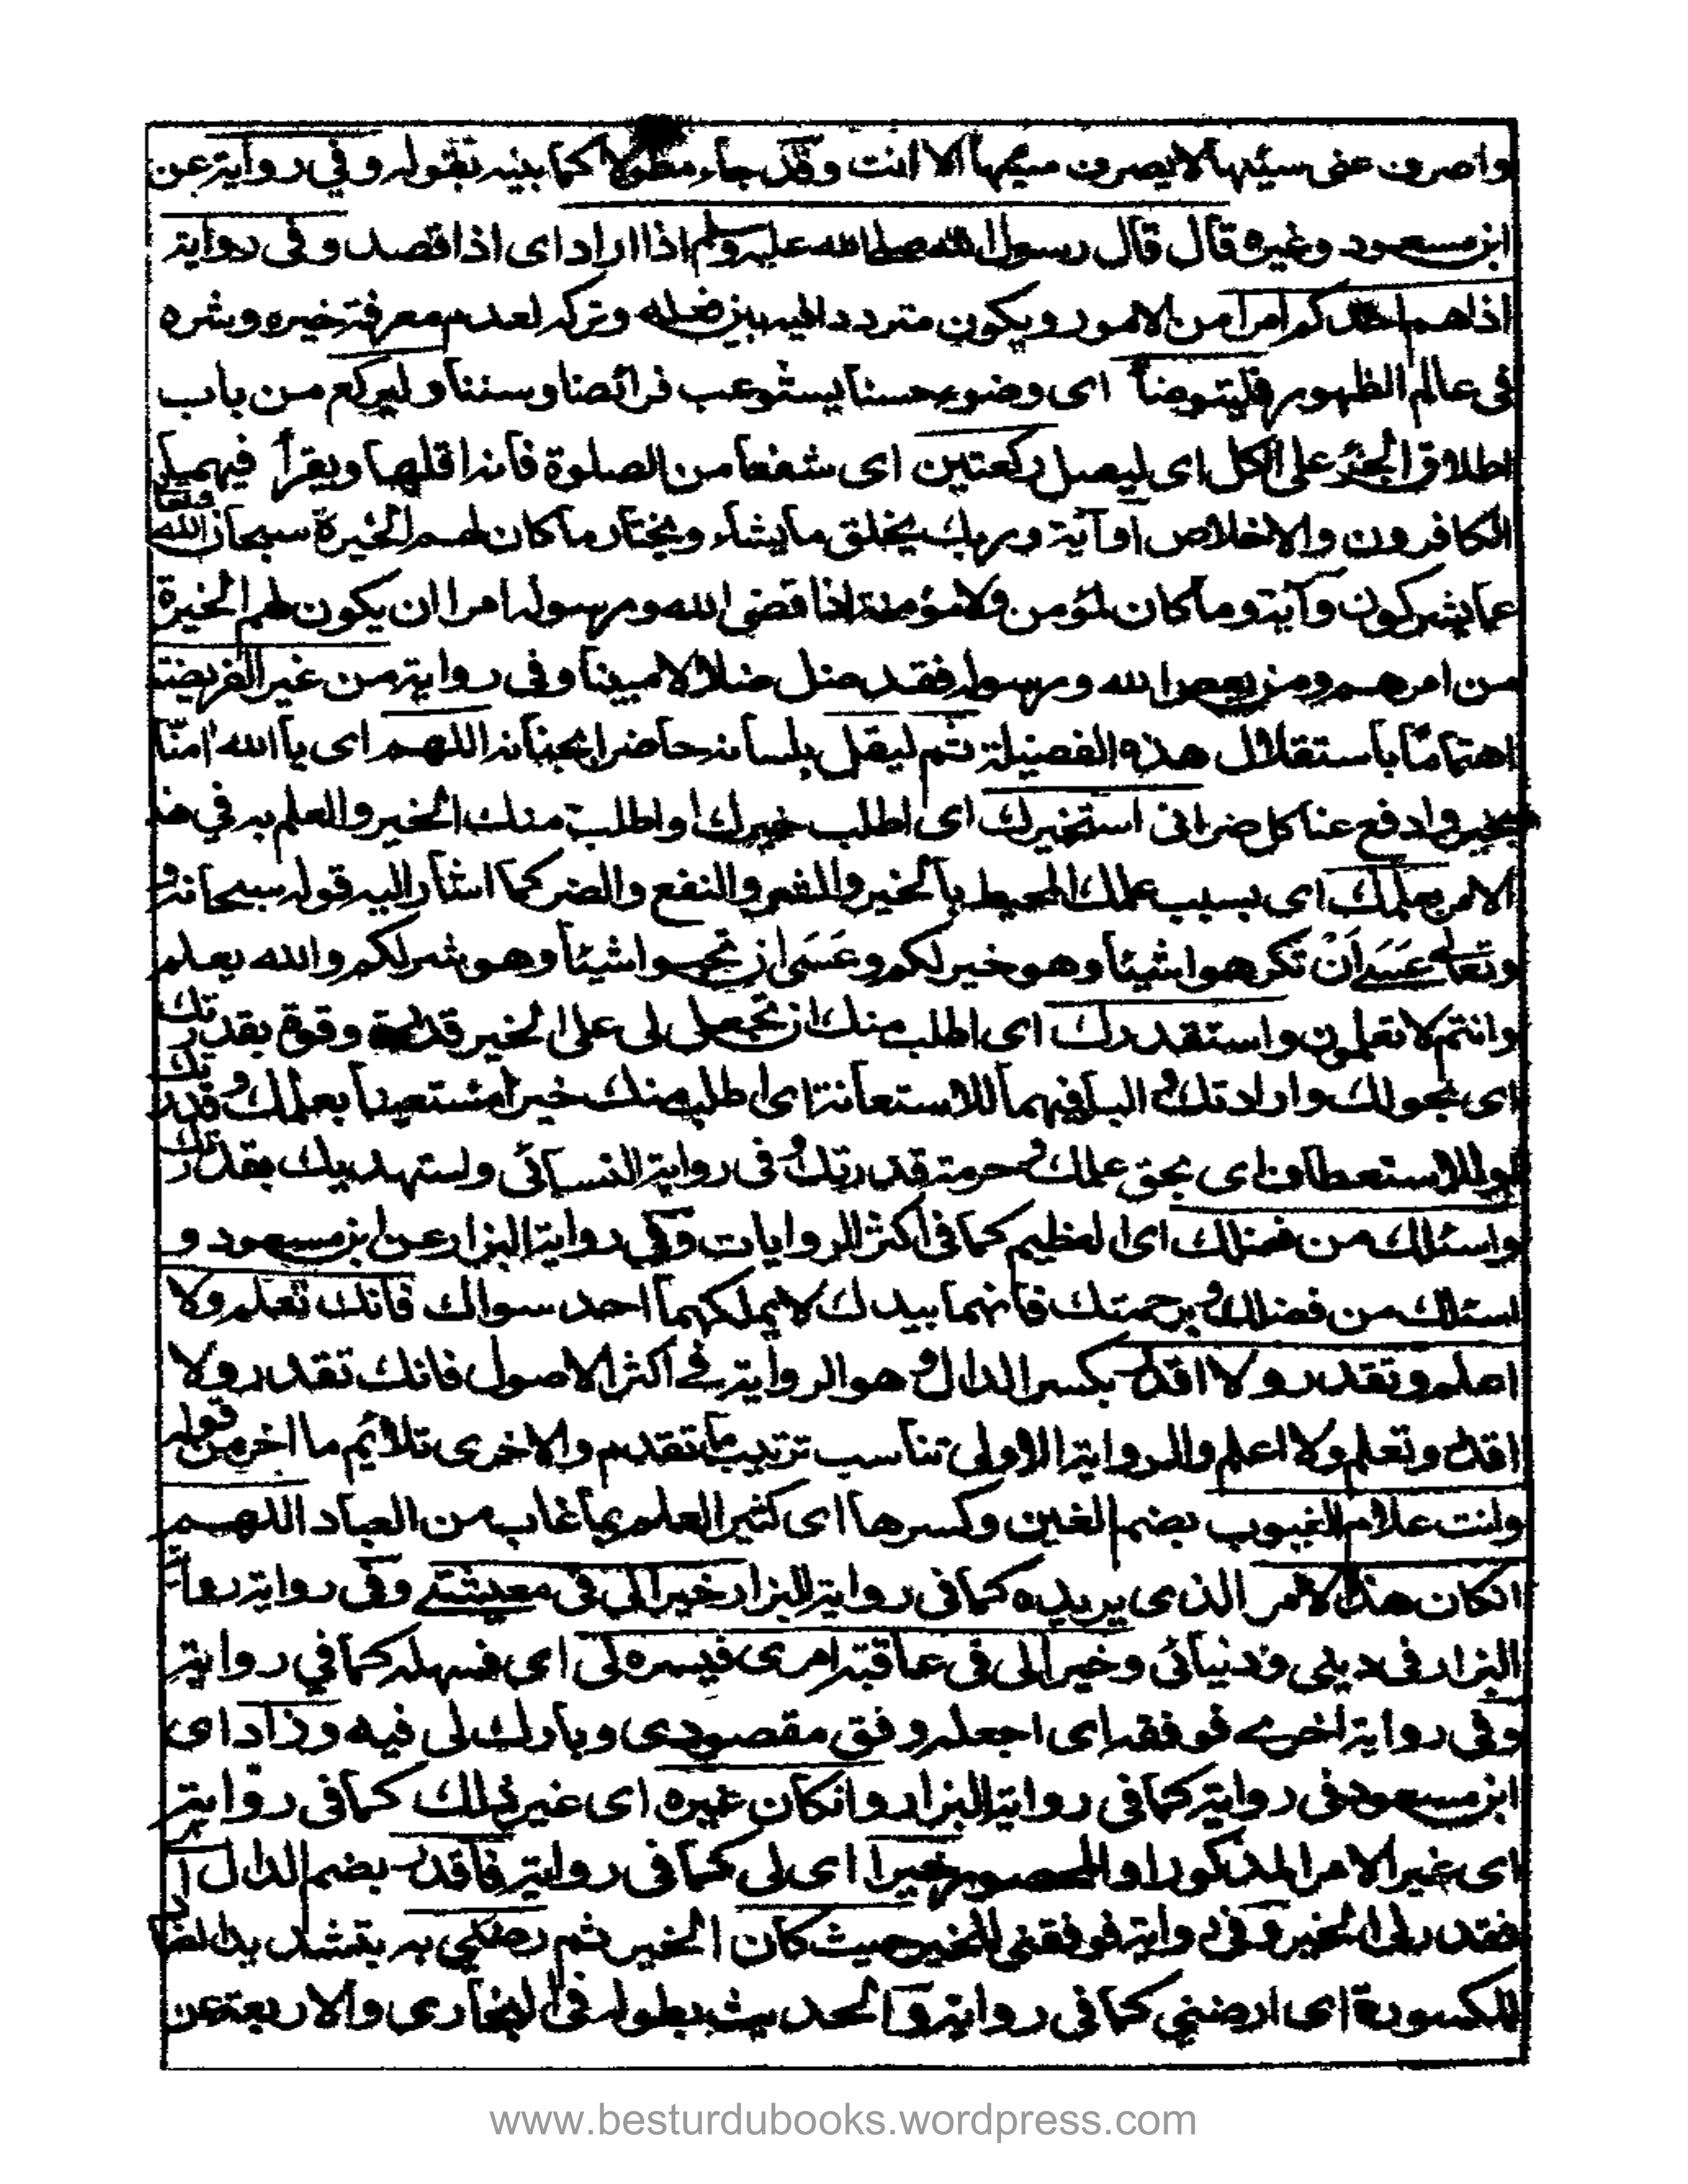 واصرف عنى سيئها لا يصرف سيئها الا انت وقد جاء مطولا كما بينه بقوله وفي رواية عن
ابن مسعود وغيره قال قال رسول الله صلى الله عليه وسلم اذا اراد اى اذا قصد وفى رواية
اذا هم احدكم امرا من الامور ويكون متردد اليه بين فعله وتركه لعدم معرفة خيره وشره
فى عالم الظهور فليتوضأ اى وضوء حسنا يستوعب فرائضا وسننا وليركع من باب
اطلاق الجزء على الكل اى ليصل ركعتين اى شفعا من الصلوة فانه اقلها ويقرأ فيهما
الكافرون والاخلاص اوآية وربك يخلق ما يشاء ويختار ما كان لهم الخيرة سبحان الله وتعالى
عما يشركون وآية وما كان لمؤمن ولا مؤمنة اذا قضى الله ورسوله امرا ان يكون لهم الخيرة
من امرهم ومن يعص الله ورسوله فقد ضل ضلالا مبينا وفى رواية من غير الفريضة
اهتماما باستقلال هذه الفضيلة ثم ليقل بلسانه حاضرا بجنانه اللهم اى يا الله امنا
بخير وادفع عنا كل ضر انى استخيرك اى اطلب خيرك او اطلب منك الخير والعلم به في هذا
الامر بعلمك اى بسبب علمك المحيط بالخير والشر والنفع والضر كما اشار اليه قوله سبحانه و
وتعالى عَسَى اَنْ تكرهوا شيئا وهو خير لكم وعَسَى ان تحبوا شيئا وهو شر لكم والله يعلم
وانتم لا تعلمون واستقدرك اى اطلب منك ان تجعل لى على الخير قدرة وقوة بقدرتك
اى بحولك وارادتك و البا فيهما للاستعانة اى اطلب منك خيرا مستعينا بعلمك و قدرتك
او للاستعطاف اى بحق علمك و حرمة قدرتك و فى رواية النسائى واستهديك بقدرتك
واسئلك من فضلك اى العظيم كما فى اكثر الروايات وفي رواية البزار عن ابن مسعود و
اسئلك من فضلك و برحمتك فانهما بيدك لا يملكهما احد سواك فانك تعلم ولا
اعلم وتقدر ولا اقدر بكسر الدال و هو الرواية في اكثر الاصول فانك تقدر ولا
اقدر وتعلم ولا اعلم والرواية الاولى تناسب ترتيب ما تقدم والاخرى تلائم ما اخر من قوله
وانت علام الغيوب بضم الغين وكسرها اى كثير العلم بما غاب من العباد اللهم
انكان هذا الامر الذى يريده كما فى رواية البزار خيرا لى فى معيشتي وفى رواية رواية
البزار فى دينى ودنيائى وخيرا لى فى عاقبة امرى فيسره لى اى فسهله كما في رواية
وفى رواية اخرى فوفقه اى اجعله وفق مقصودى وبارك لى فيه وزاد اى
ابن مسعود فى رواية كما فى رواية البزار وانكان غيره اى غير ذلك كما فى رواية
اى غير الامر المذكور او المحصور خيرا اى لى كما فى رواية فاقدر بضم الدال اى
فقدر لى الخير وفى رواية فوفقنى للخير حيث كان الخير ثم رضنى به بتشديد الضاد
المكسورة اى ارضني كما فى رواية والحديث بطوله فى البخارى والاربعة عن
www.besturdubooks.wordpress.com